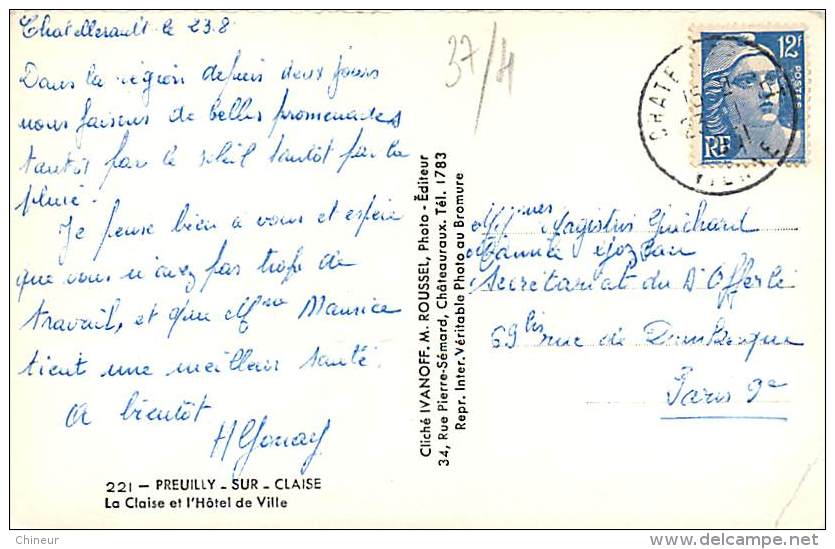 Chatellerault le 23.8
Dans la région depuis deux jours
nous faisons de belles promenades
tantôt par le soleil tantôt par la
pluie.
Je pense bien à vous et espère
que vous n'avez pas trop de
travail, et que Mme Maurice
tient une meilleure santé.
A bientôt
37/4
12F
POSTES
RF
CHATE
VIENNE
Mmes Magistris Guichard
Secrétariat du Dr Offerlé
69bis rue de Dunkerque
Paris 9e
Cliché IVANOFF. M. ROUSSEL, Photo - Éditeur
34, Rue Pierre-Sémard, Châteauroux. Tél. 1783
Repr. Inter. Véritable Photo au Bromure
221 - PREUILLY - SUR - CLAISE
La Claise et l'Hôtel de Ville
Chineur
delcampe.net